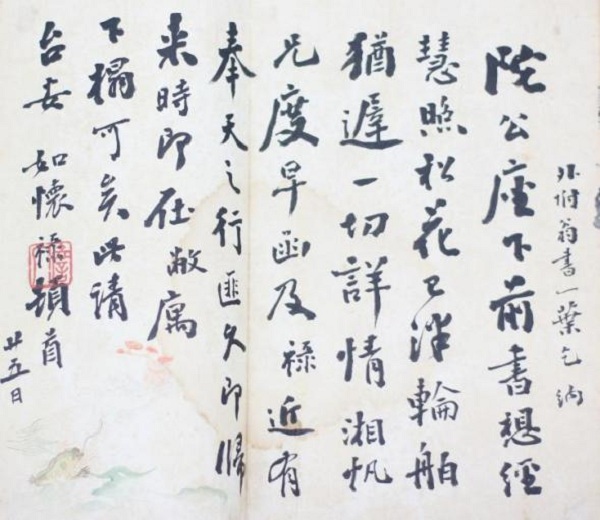 外附翁書一葉乞
院公座下前書想經
慧照松花已泮輪舶
猶遲一切詳情湘帆
兄度早函及祿近有
奉天之行匪久即歸
来時即在敝寓
下榻可矣此請
台安 如懷祿頓首
廿五日